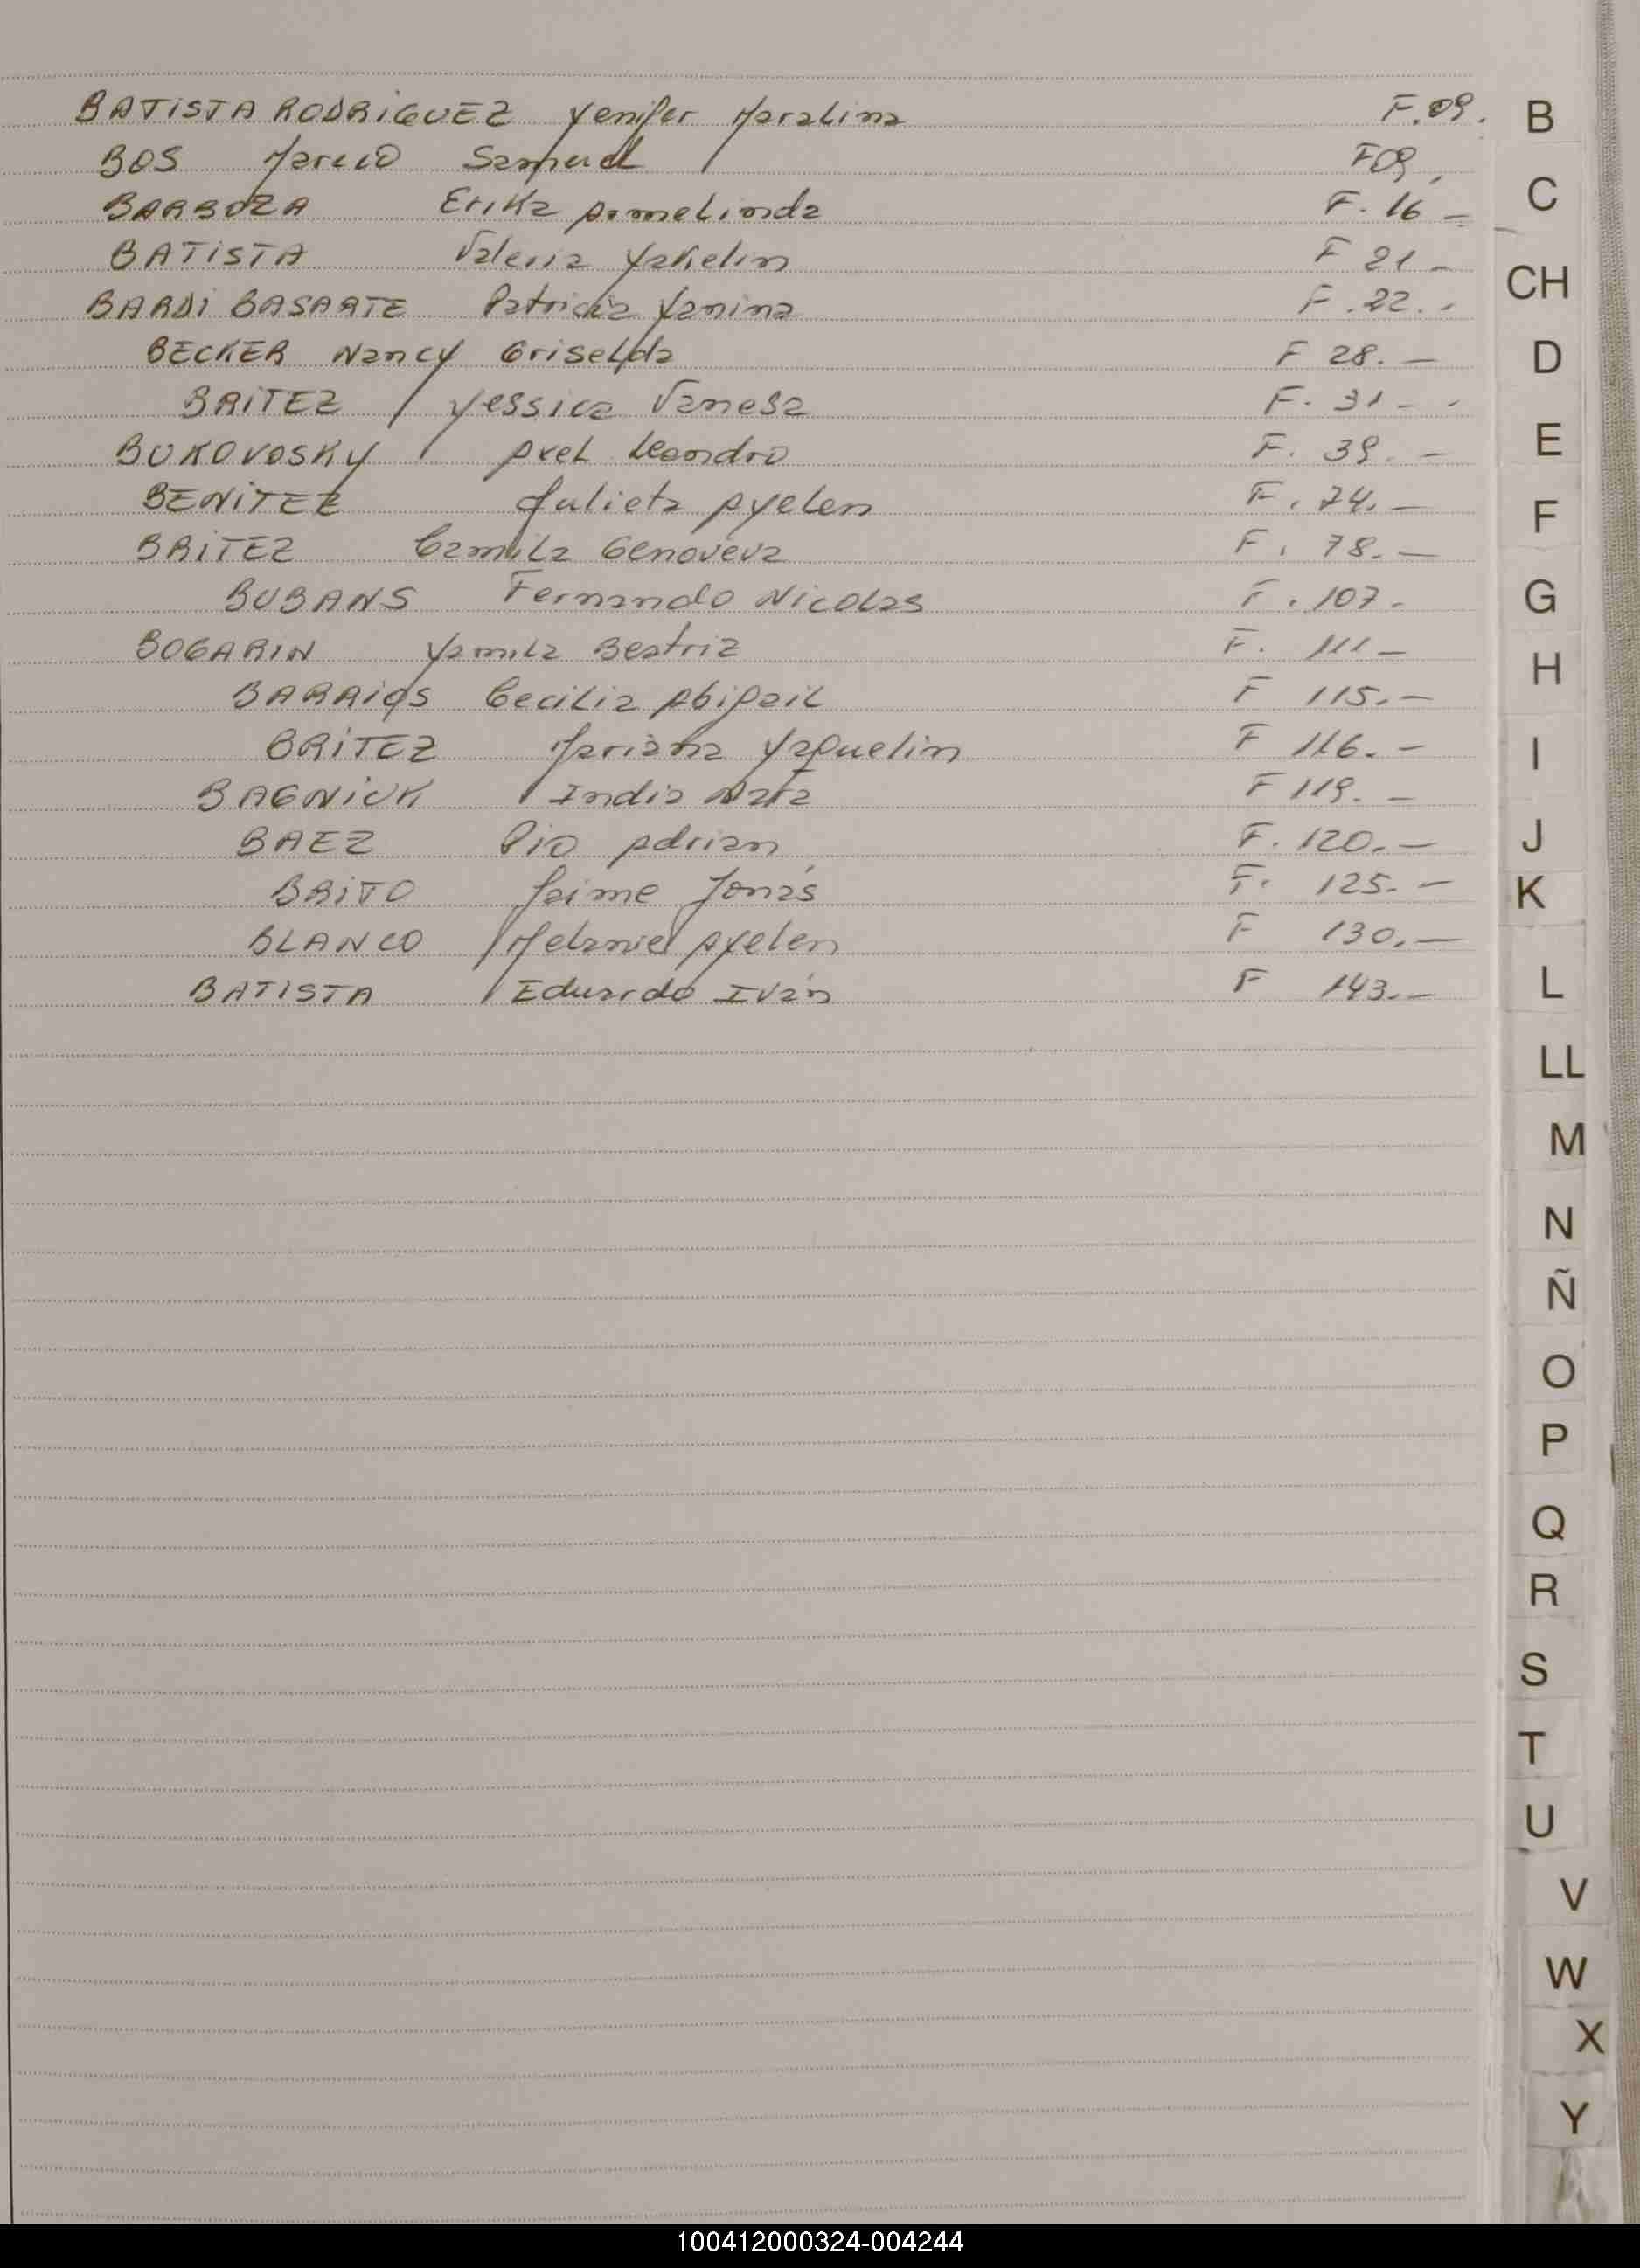 BATISTA RODRIGUEZ Yenifer Maralina F. 09.
BOS Marcio Samuel F 09.
BARBOZA Erika Armelinda F. 16 -
BATISTA Valeria Yakelin F 21 -
BARDI BASARTE Patricia Yanina F. 22. -
BECKER Nancy Griselda F 28. -
BRITEZ Yessica Vanesa F. 31 - -
BUKOVOSKY Axel Leandro F. 39. -
BENITEZ Julieta Ayelen F. 74. -
BRITEZ Camila Genoveva F. 78. -
BUBANS Fernando Nicolas F. 107. -
BOGARIN Yamila Beatriz F. 111 -
BARRIOS Cecilia Abigail F 115. -
BRITEZ Mariana Yaquelin F 116. -
BAGNIUK India F 119. -
BAEZ Pio Adrian F. 120. -
BRITO Jaime Jonás F. 125. -
BLANCO Melanie Ayelen F 130. -
BATISTA Eduardo Iván F 143. -
B
C
CH
D
E
F
G
H
I
J
K
L
LL
M
N
Ñ
O
P
Q
R
S
T
U
V
W
X
Y
100412000324-004244